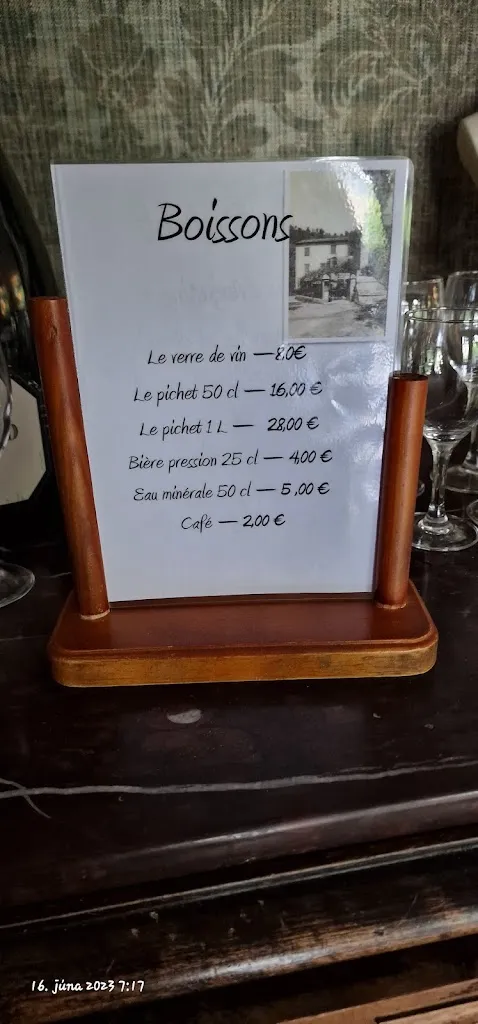 Boissons
Le verre de vin — 8.0€
Le pichet 50 cl — 16,00 €
Le pichet 1 L — 28,00 €
Bière pression 25 cl — 4,00 €
Eau minérale 50 cl — 5,00 €
Café — 2,00 €
16. júna 2023 7:17